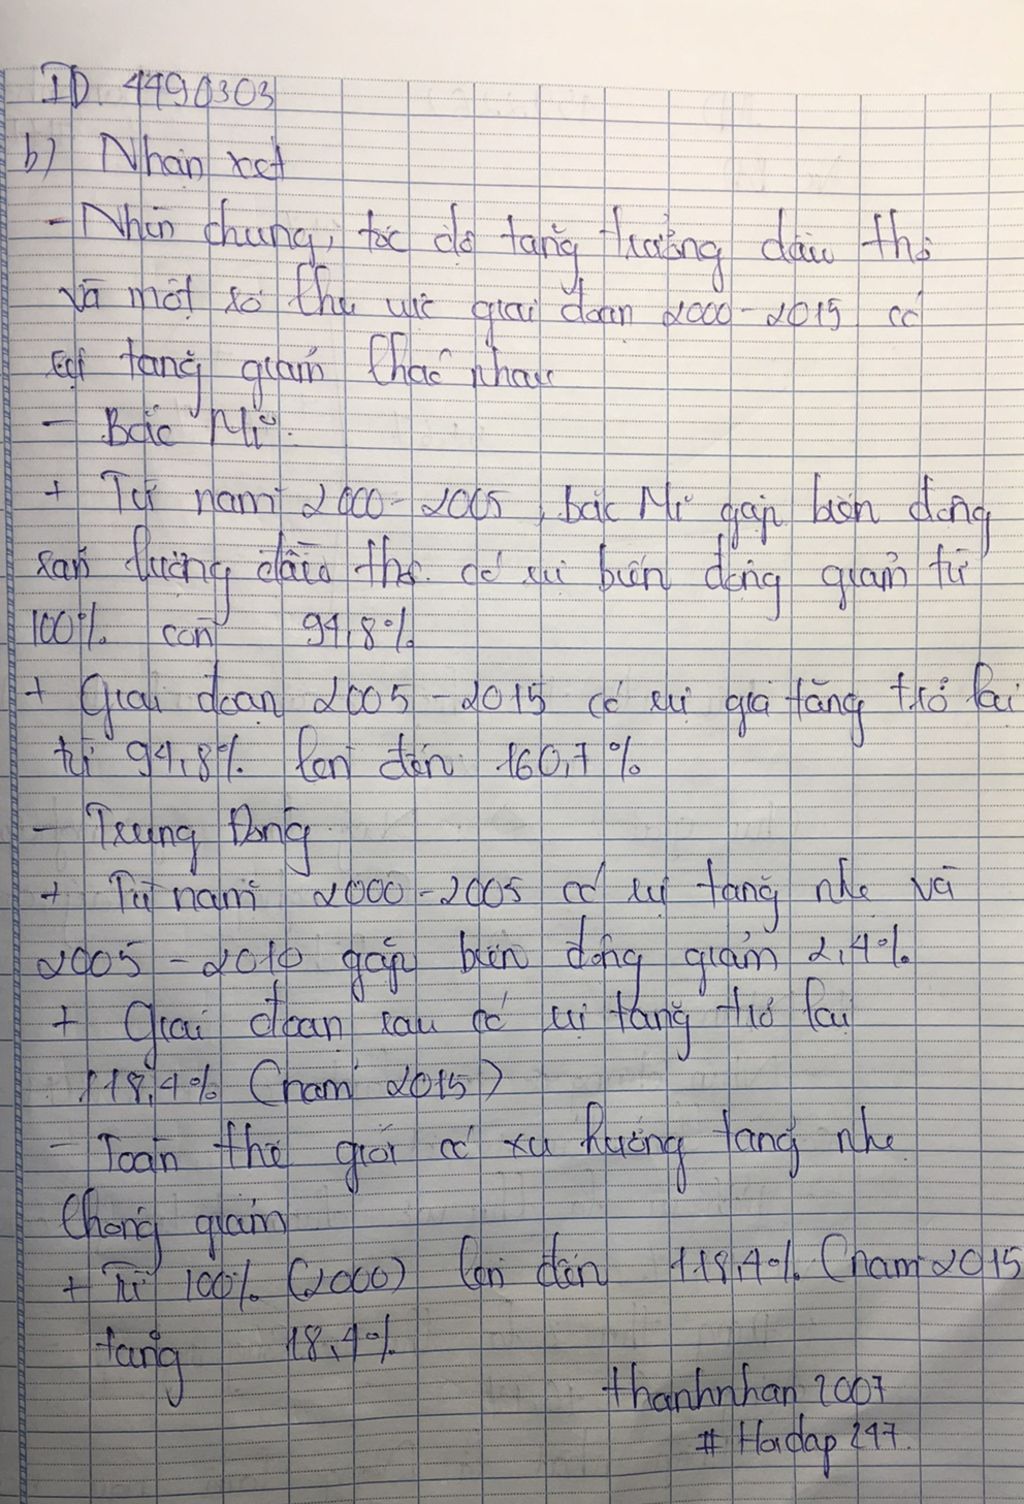 ID. 4490303
b) Nhận xét
- Nhìn chung, tốc độ tăng trưởng dầu thô
và một số khu vực giai đoạn 2000-2015 có
sự tăng giảm khác nhau
- Bắc Mĩ:
+ Từ năm 2000-2005, bắc Mĩ gặp biến động
sản lượng dầu thô có sự biến động giảm từ
100% còn 94,8%
+ Giai đoạn 2005-2015 có sự gia tăng trở lại
từ 94,8% lên đến 160,7%
- Trung Đông
+ Từ năm 2000-2005 có sự tăng nhẹ và
2005-2010 gặp biến động giảm 2,4%
+ Giai đoạn sau có sự tăng trở lại
118,4% (năm 2015)
- Toàn thế giới có xu hướng tăng nhẹ
không giảm
+ Từ 100% (2000) lên đến 118,4% (năm 2015
tăng 18,4%
thanhnhan2007
# Hoidap247.